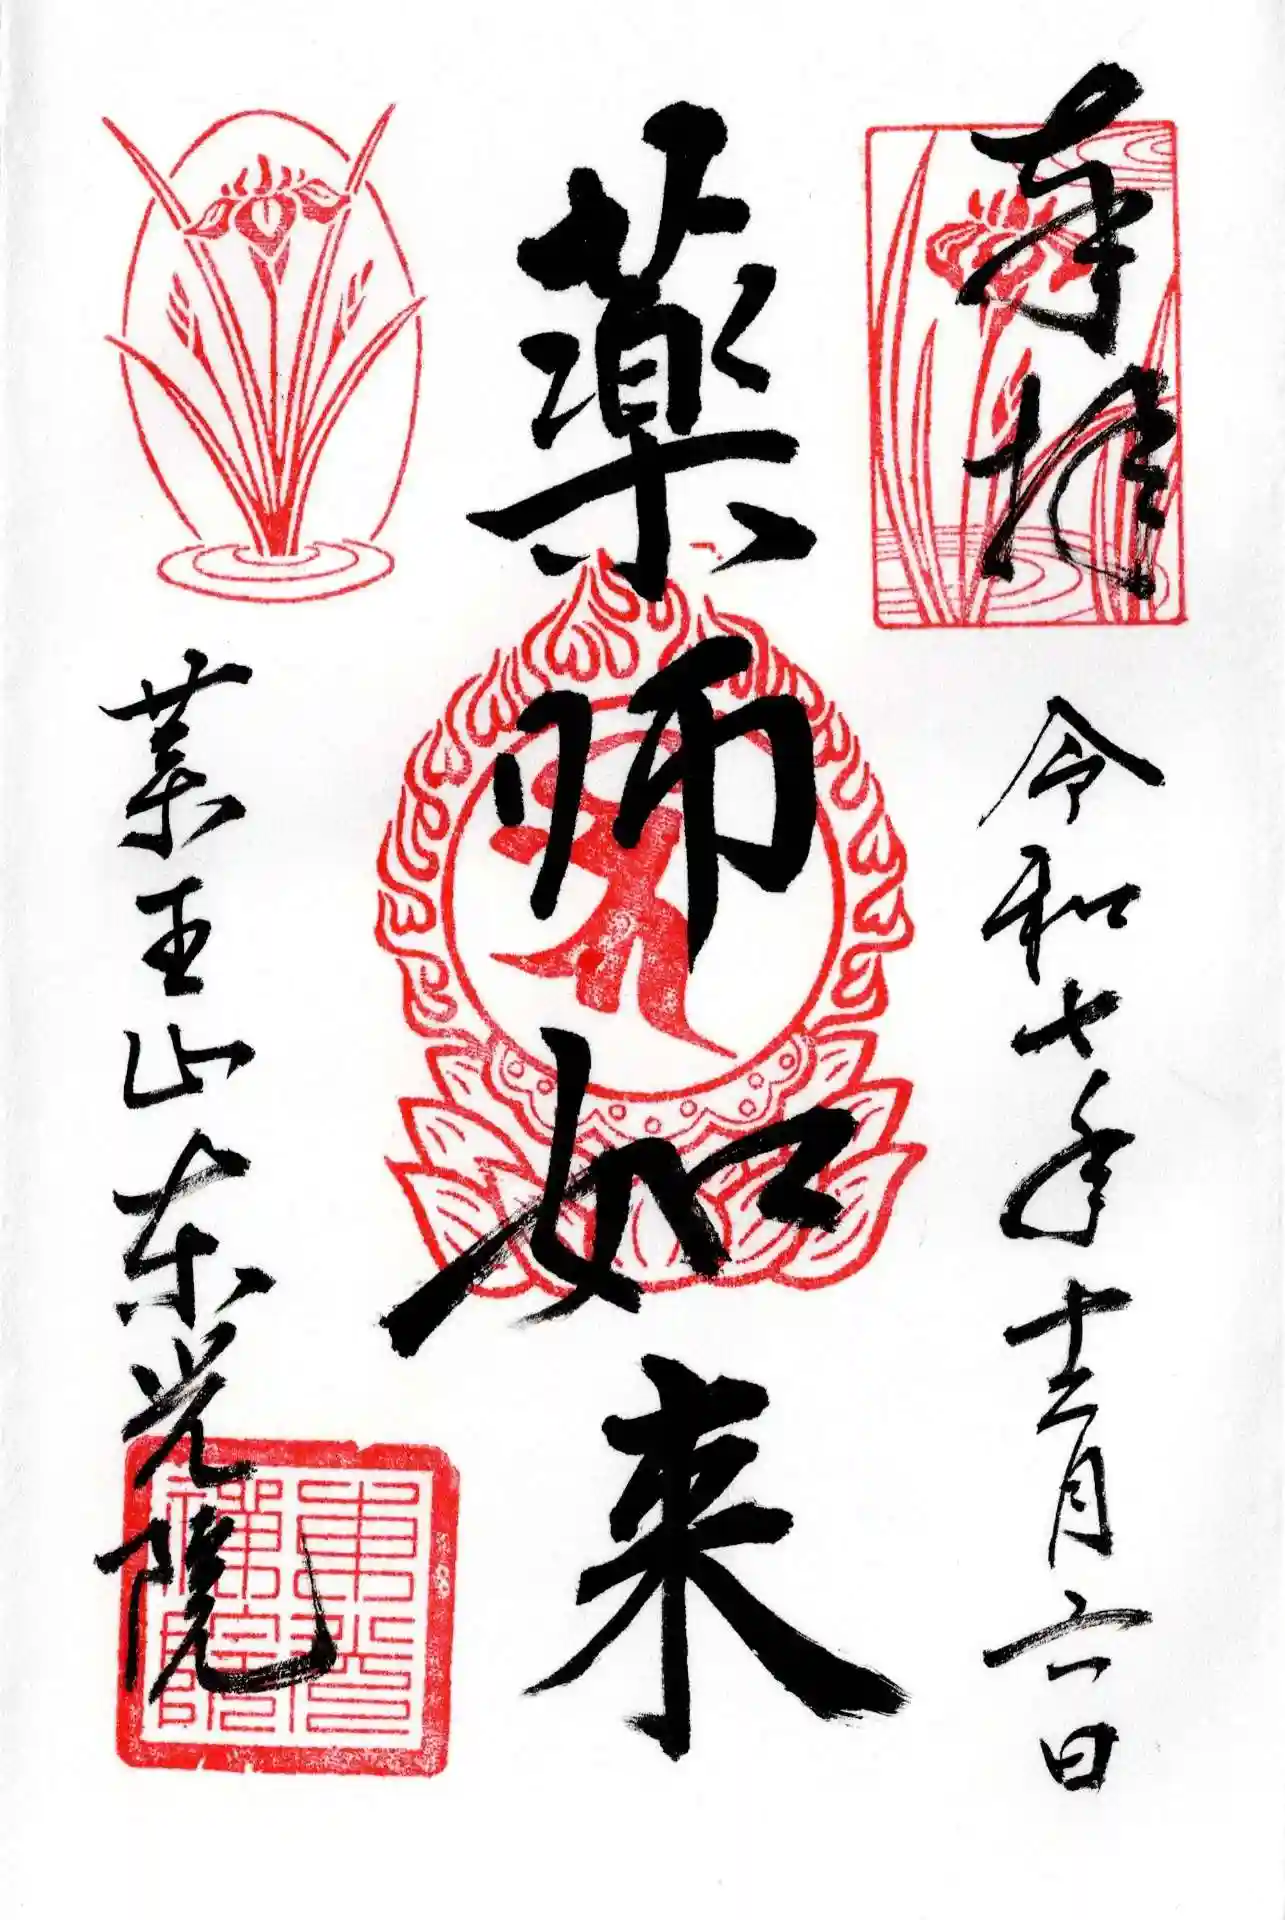 奉拝
令和七年十二月六日
薬師如来
薬王山東光院
東光禅院